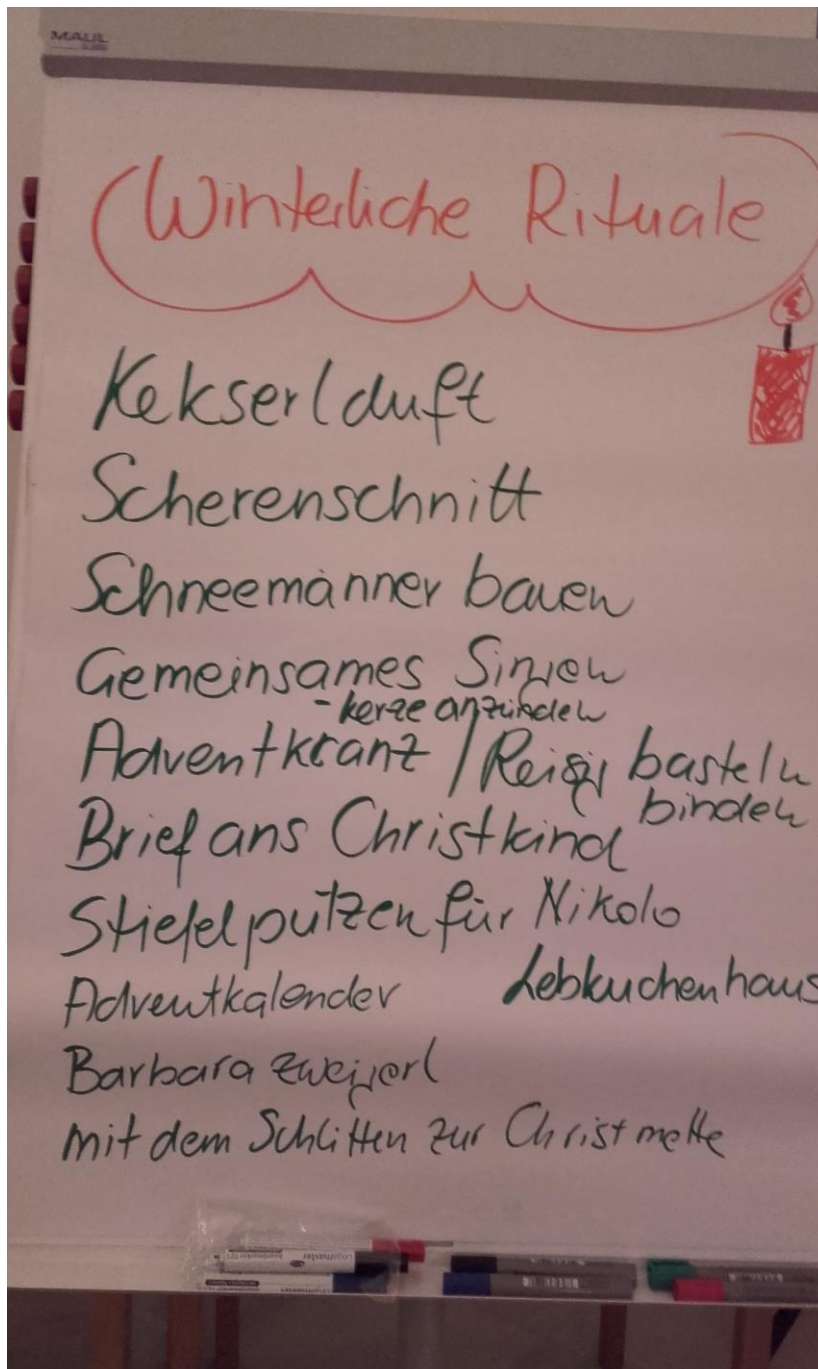 MAUL
Winterliche Rituale
Kekserlduft
Scherenschnitt
Schneemänner bauen
Gemeinsames Singen
- kerze anzünden
Adventkranz / Reisig basteln
binden
Brief ans Christkind
Stiefel putzen für Nikolo
Adventkalender Lebkuchenhaus
Barbara zweigerl
mit dem Schlitten zur Christmette
Legamaster
Legamaster